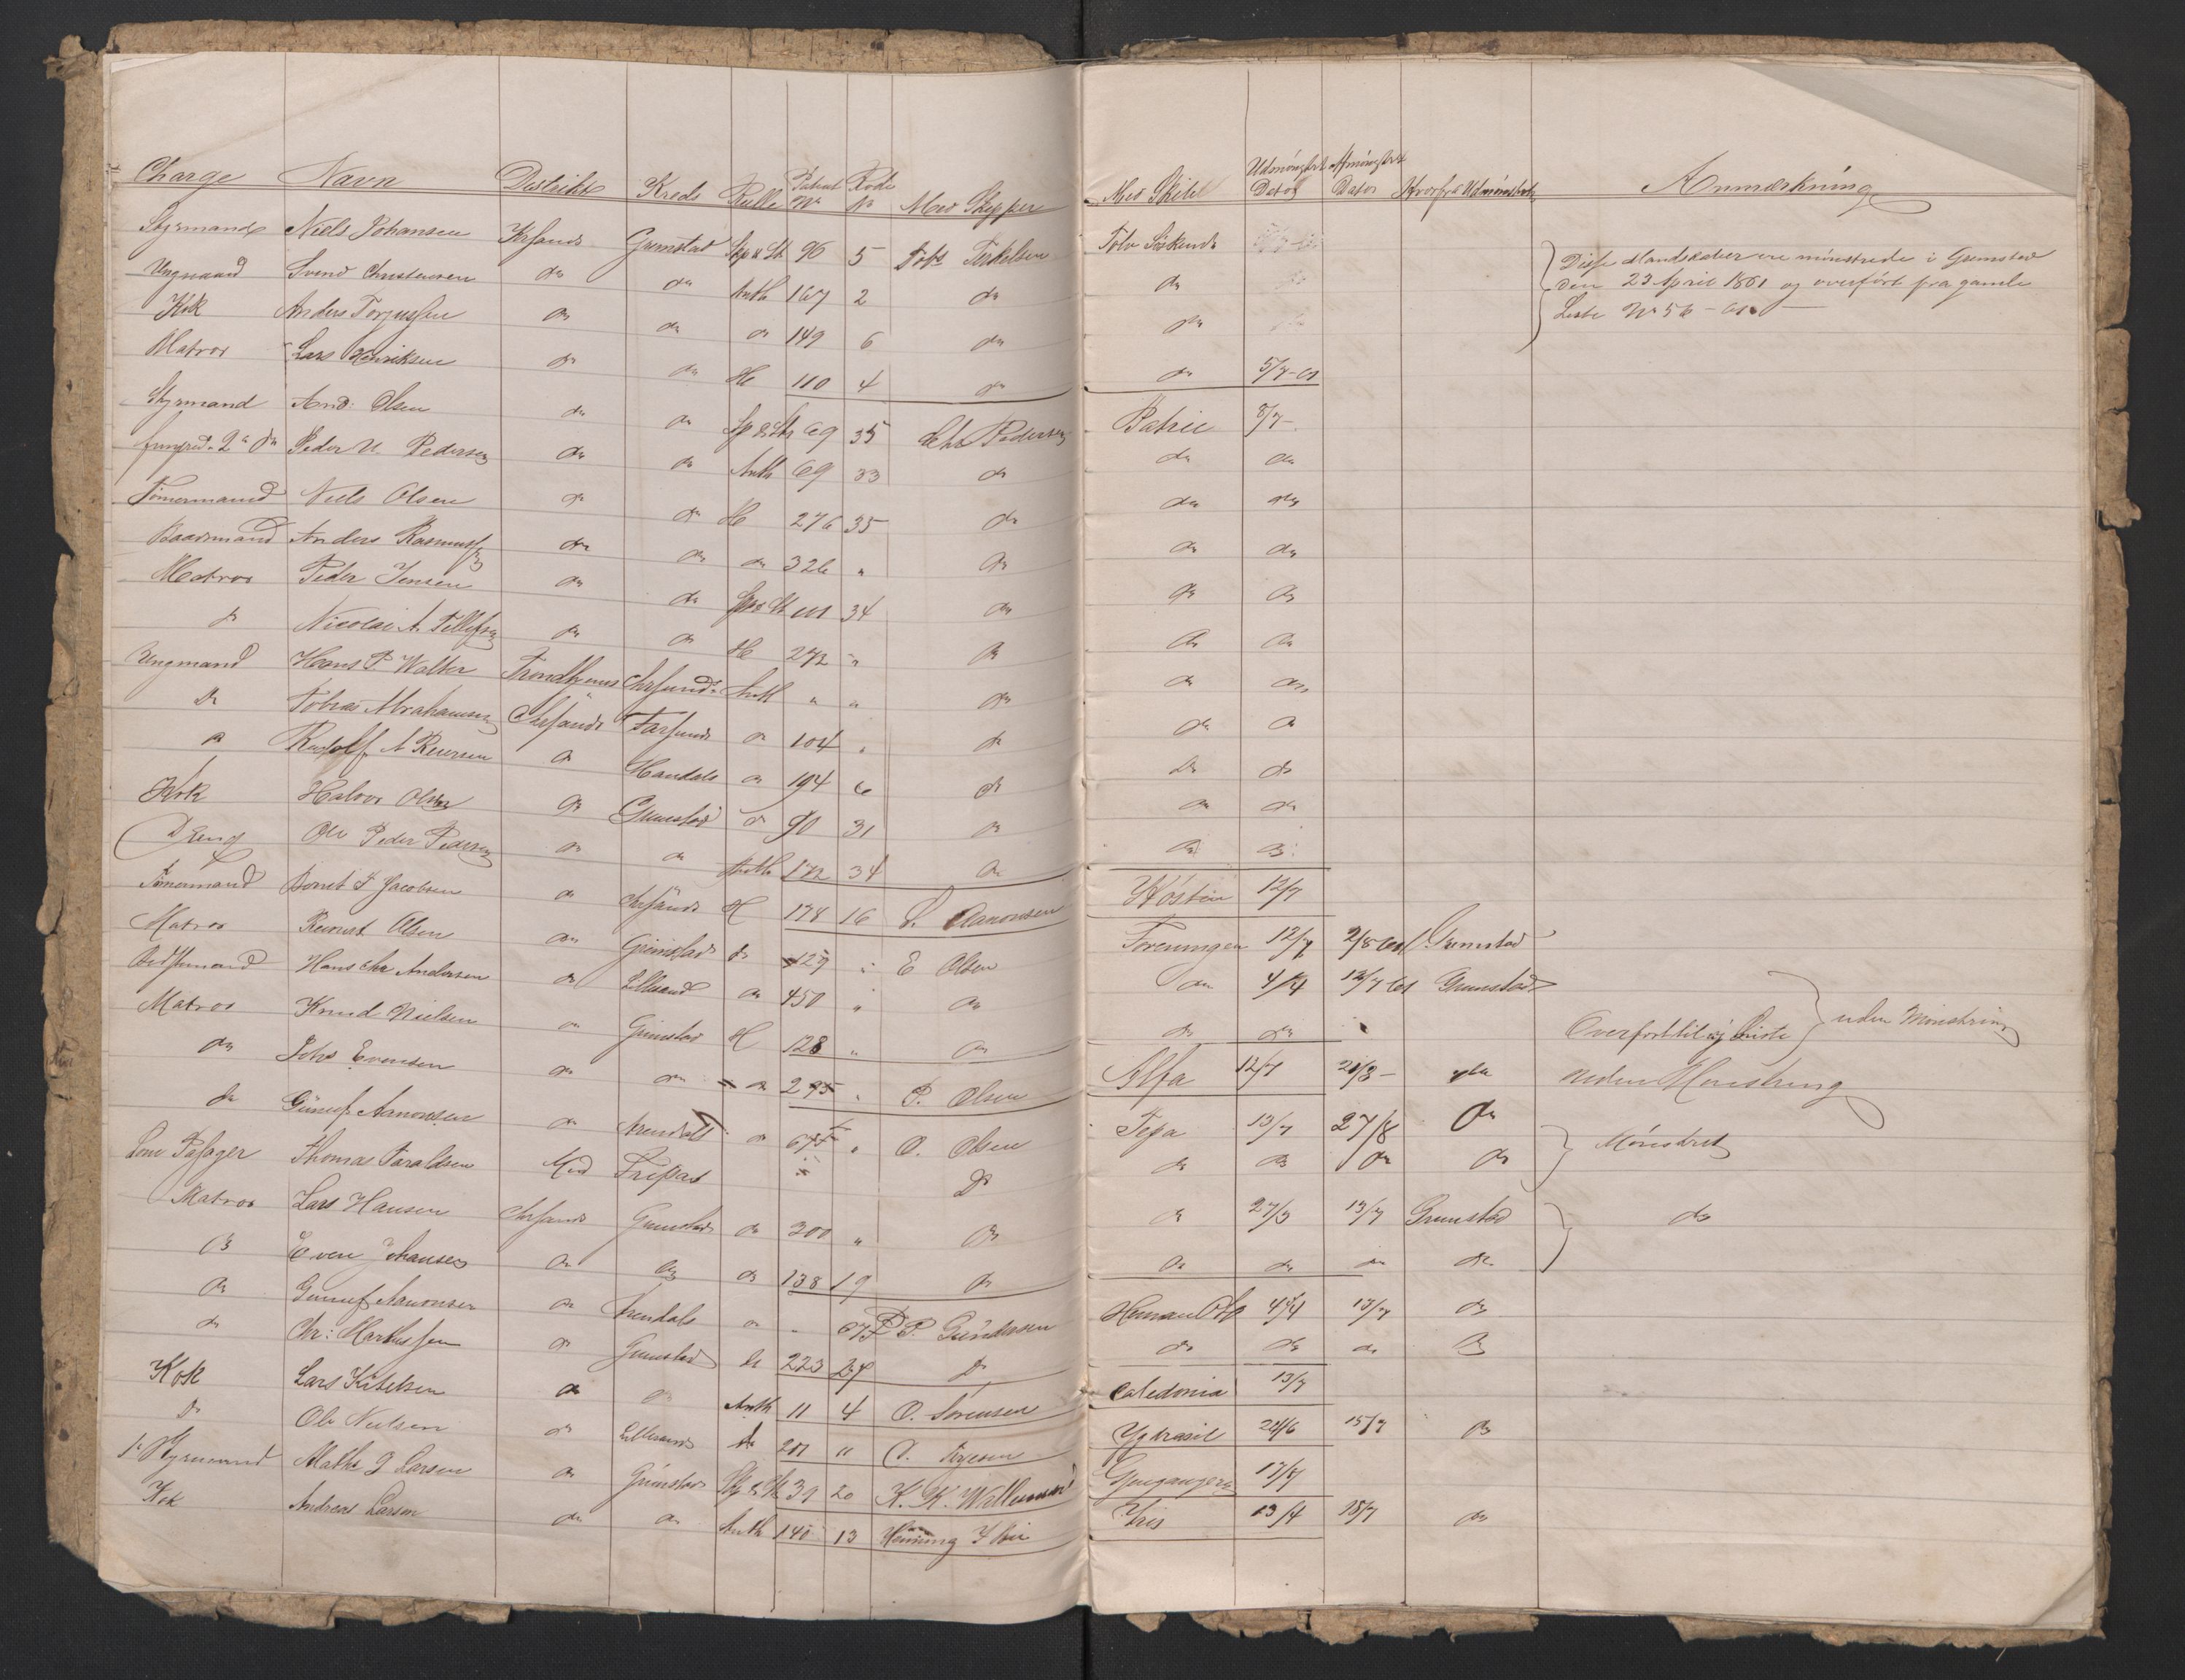 Charge Navn Distrikt Kreds Rulle Patent No Rode No Med Skipper Med Skib Udmönstret Dato Afmönstret Dato Hvorfra Udmönstret Anmærkning
Styrmand Niels Johansen Krsand Grimstad Skp & St 96 5 Tobs Terkelsen Tolv Södskende
Ungmand Svend Christensen do do Anth 167 2 do do
Kok Anders Torjussen do do do 149 6 do do
Disse Mandskaber ere mönstrede i Grimstad
den 23 April 1861 og overfört fra gamle
Liste No 56 - 61
Matros Lars Henriksen do do H 110 4 do do 5/7-61
Styrmand And: Olsen do do Sp & St 69 35 Chr Pedersen Patric 8/7-
fungred. 2den do Peder N. Pedersen do do Anth 69 33 do do do
Tömermand Niels Olsen do do H 276 35 do do do
Baadsmand Anders Rasmussen do do do 326 " do do do
Matros Peder Jensen do do Sp & St 101 34 do do do
do Nicolai A. Tellefsen do do H 272 " do do do
Ungmand Hans P Walter Trondhjems Chrsund Anth " " do do do
do Tobias Abrahamsen Chrsands Farsund do 104 " do do do
do Rudolf A Reiersen do Mandals do 194 6 do do do
Kok Halvor Olsen do Grimstad do 90 31 do do do
Dreng Ole Peder Pedersen do do Anth 172 34 do do do
Tömermand Berret T Jacobsen do Chrsands H 178 16 S. Aanonsen 12/7
Matros Reinert Olsen do Grimstad do 129 " E Olsen Foreningen 12/7 2/8 61 Grimstad
Bedstemand Hans Chr Andersen do Lillesand do 450 " do do 4/4 12/7 61 Grimstad
Matros Knud Nielsen do Grimstad H 128 " do do do Overfört til ny Liste uden Mönstring
do Johs Evensen do do do 295 " P. Olsen Alfa 12/7 21/8- do uden Mönstring
do Gunuf Aanonsen do Arendal do 67 " O. Olsen Tega 13/7 27/8 do Mönstret
Som Passager Thomas Taraldsen Med Fripas do do do do do
Matros Lars Hansen Chrsands Grimstads do 300 " do do 27/3 13/7 Grimstad do
do Even Johansen do do do 138 19 do do do do do
do Gunuf Aanonsen do Arendals do " 67 P. Gundersen Herman Otto 4/4 13/7 do
do Chr: Mathiassen do Grimstad H 223 27 do do do do do
Kok Lars Kittelsen do do Anth 11 4 O. Sörensen Caledonia 13/7
do Ole Nielsen do Lillesands do 201 11 O. Terjesen Ygdrasil 24/6 15/7 do
1. Styrmand Mathi G Larsen do Grimstads Sp & St 39 20 K. K. Willumsen Gjenganger 17/7
Kok Andreas Larsen do do Anth 140 13 Henning I Iris 13/4 18/7 do